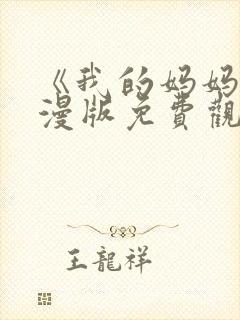 《我的妈妈
漫版免費觀
王龍祥